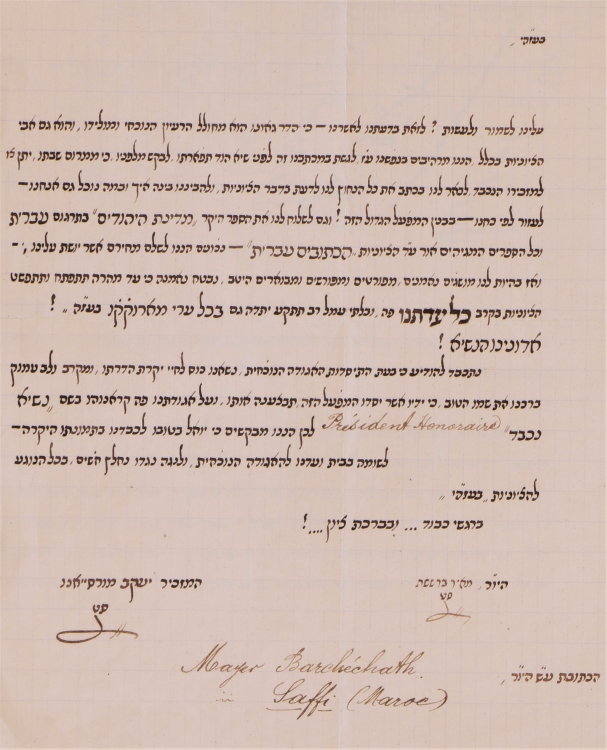 בעזהי״,
עלינו לשמור ולעשות? לזאת בדעתנו לאשרנו – כי הדר גאונו הוא מחולל הרעיון הנוכחי ומולידו, והוא גם אבי
הציוניות בכלל, הננו מרהיבים בנפשנו עז, לגשת במכתבנו זה לפני שיא הוד תפארתו, לבקש מלפניו, כי ממרום שבתו, יתן צו
למזכירו הנכבד, לבאר לנו בכתב את כל הנחוץ לנו לדעת בדבר הציוניות, ולהביננו בינה איך ובמה נוכל גם אנחנו –
לעזור לפי כחנו – בבנין המפעל הגדול הזה! וגם לשלוח לנו את הספר היקר „מדינת היהודים״ בתרגום עברית
וכל הספרים המגיהים אור על הציוניות „הכתובים עברית״ – נכונים הננו לשלם מחירם אשר יושת עלינו, –
ואז בהיות לנו מושגים נאמנים, מפורטים ומפורשים ומבוארים היטב, נבטח נאמנה כי עד מהרה תתפתח ותתפשט
הציוניות בקרב כל עדתנו פה, ובלתי עמל רב תתקע יתדה גם בכל ערי מארוקקו בעז״ה„!
אדונינו הנשיא!
נתכבד להודיע כי בעת התיסדות האגודה הנוכחית, נשאנו כוס לחיי יקרת הדרתו, ומקרב ולב עמוק
ברכנו את שמו הטוב, כי ידיו אשר יסדו המפעל הזה, תבצענה אותו, ועל אגודתנו פה קראנוהו בשם „נשיא
נכבד״ Président Honoraire לכן הננו מבקשים כי יואל בטובו לכבדנו בתמונתו היקרה –
לשומה בבית ועדנו להאגודה הנוכחית, ולנגה נגדו נחלץ חשים, בכל הנוגע
להציוניות „בעזהי״„
ברגשי כבוד... ובברכת ציון....!
היו״ר, מאיר ברששת המזכיר יעקב מורסייאנו
ס״ט ס״ט
Mayer Barchéchath.
הכתובת ע״ש היו״ר,
in Saffi (Maroc)